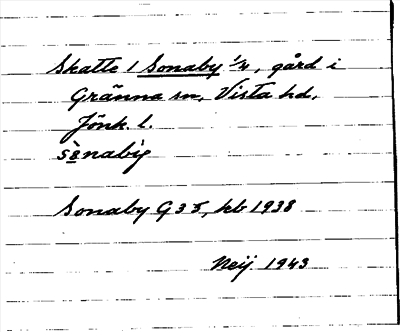 Skatte / Sonaby 1/4, gård i
Gränna sn, Vista hd,
Jönk. l.
Sonaby G35, hb 1938
Neij 1943